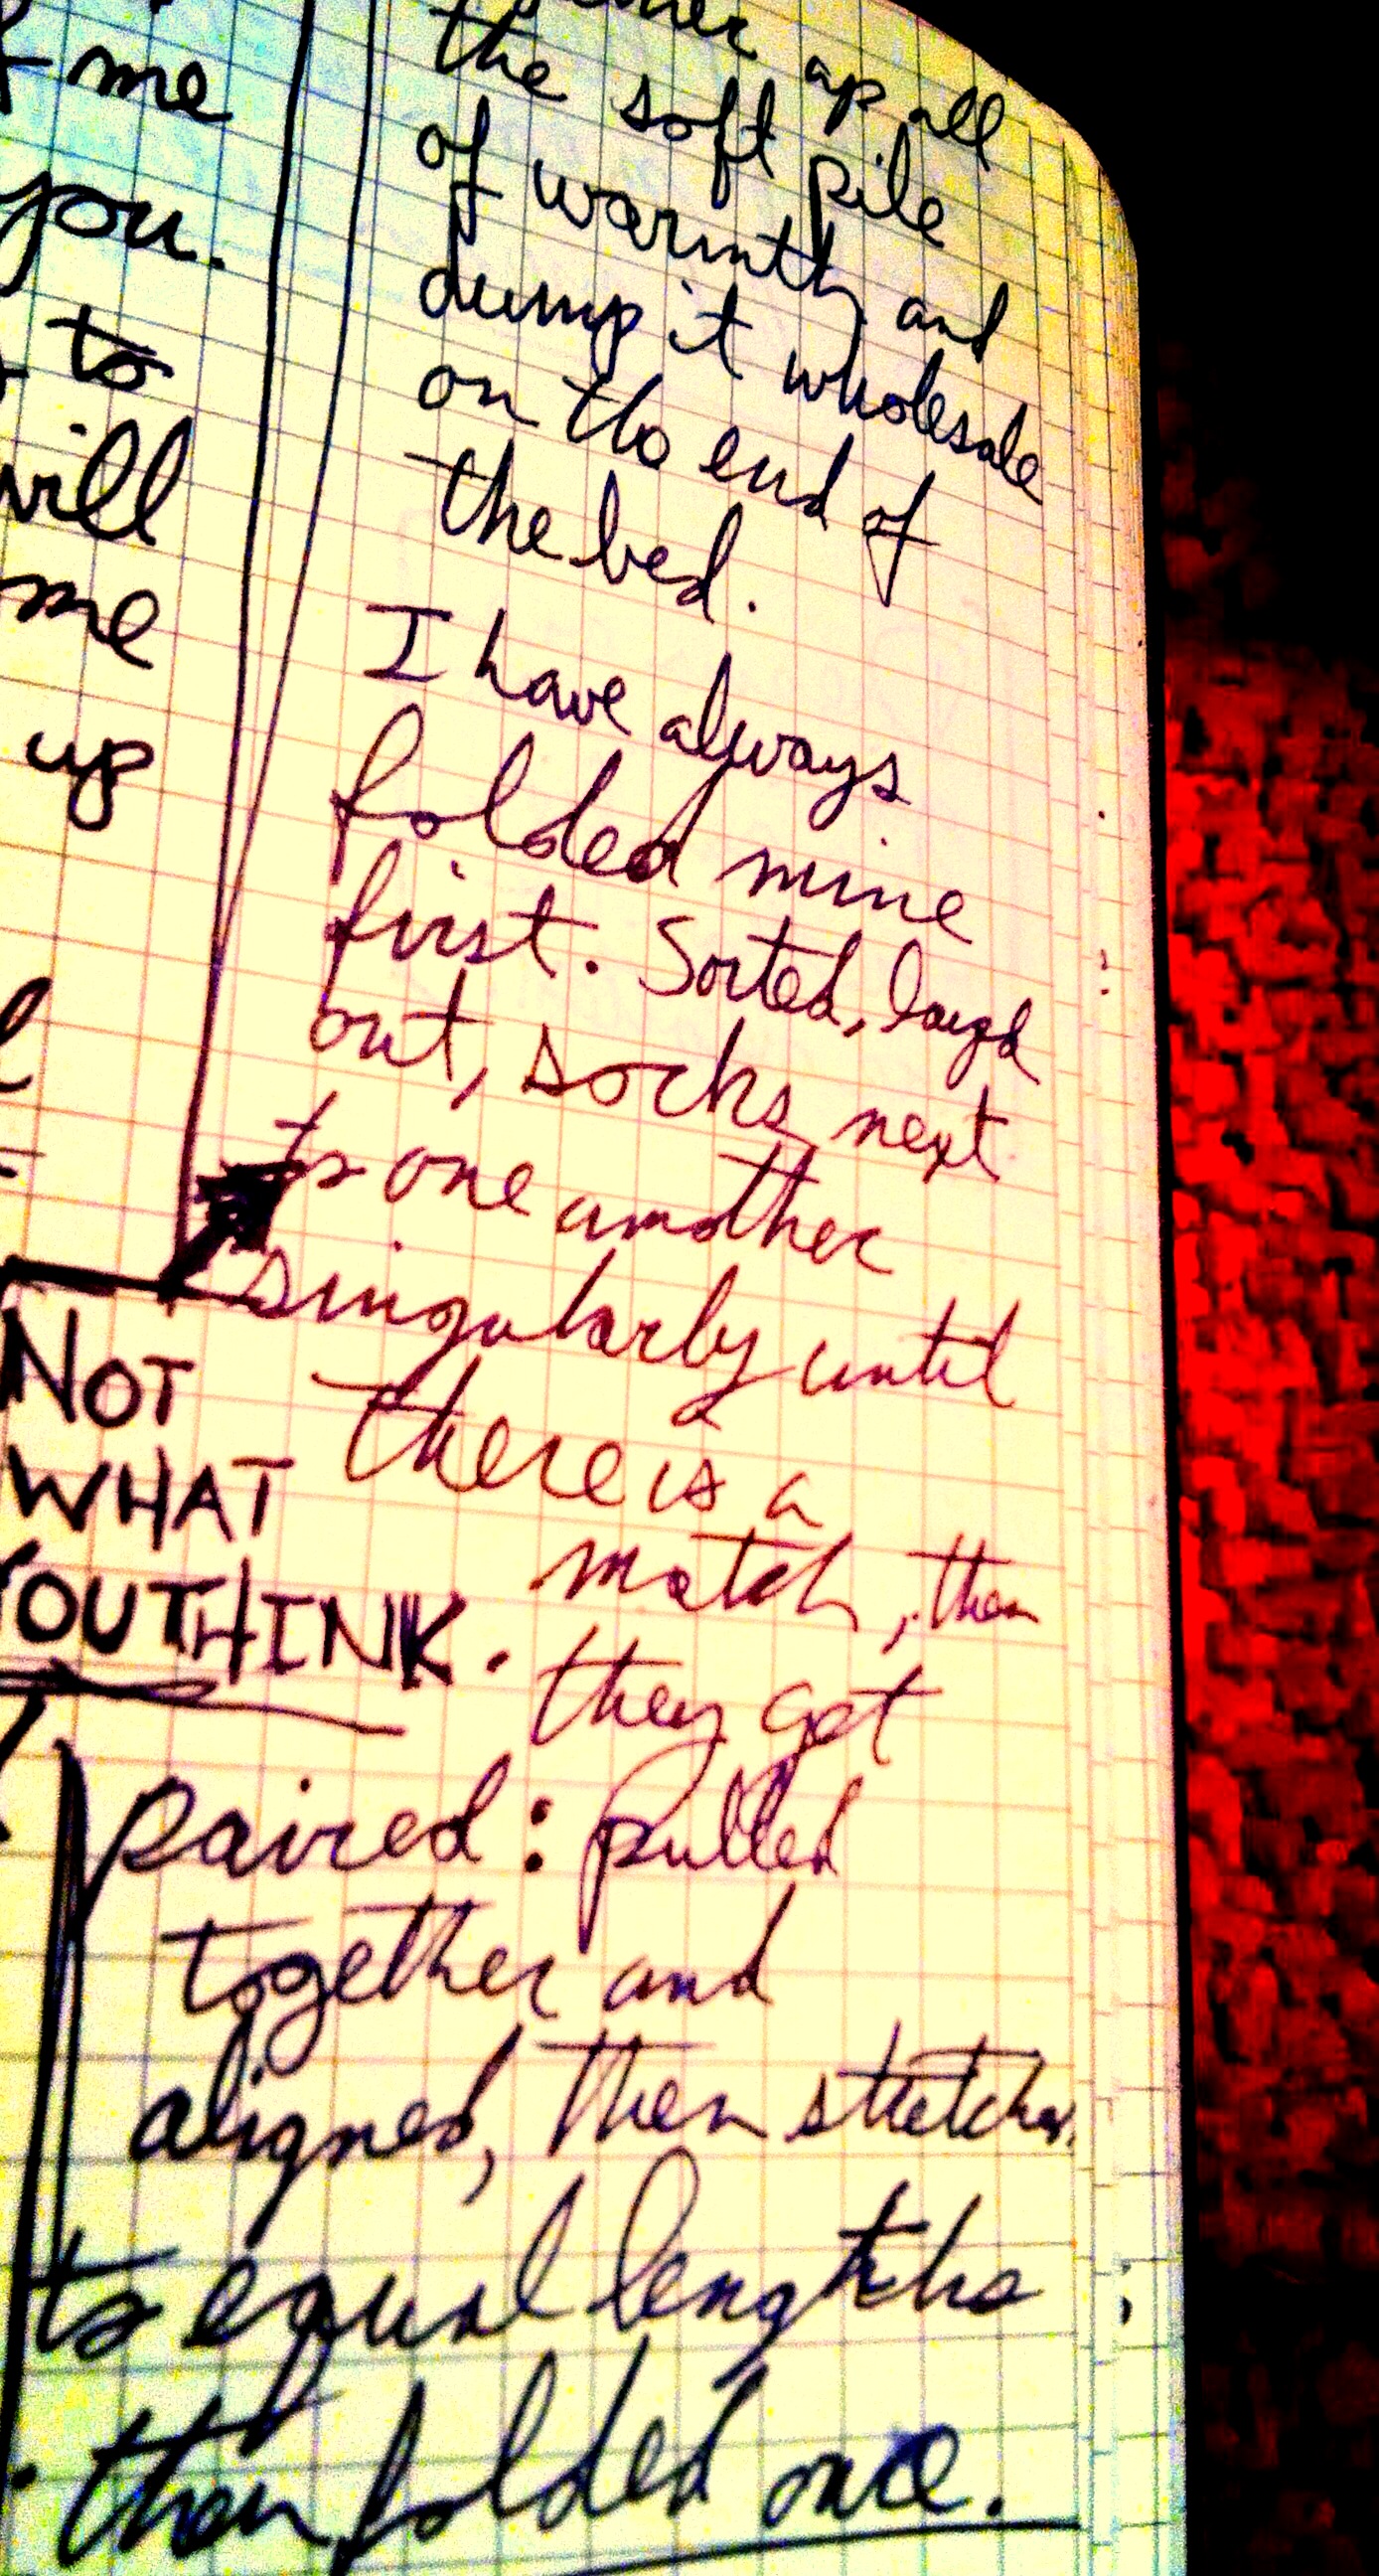 me
you.
to
will
me
up
NOT
WHAT
YOU THINK.
up all
the soft pile
of warmth and
dump it wholesale
on the end of
the bed.
I have always
folded mine
first. Sorted,
out, socks next
to one another
singularly until
there is a
match, then
they get
paired: pulled
together and
aligned, then stretched
to equal lengths
then folded once.